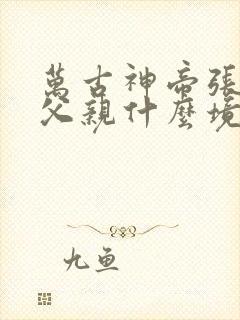 萬古神帝張
父親什麼境
九魚